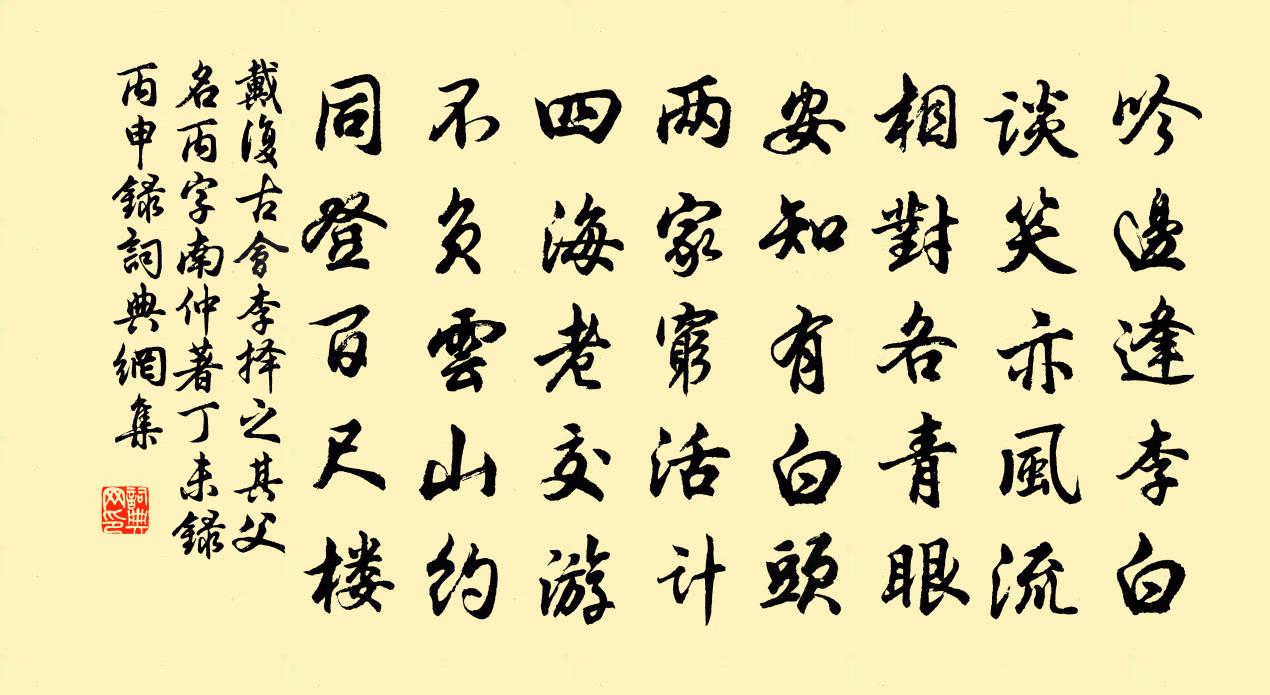 吟邊逢李白
談笑亦風流
相對各青眼
安知有白頭
两家窮活计
四海老交游
不负雲山约
同登百尺楼
戴復古會李择之其父
名丙字南仲著丁未録
丙申録詞典網集
詞典网印